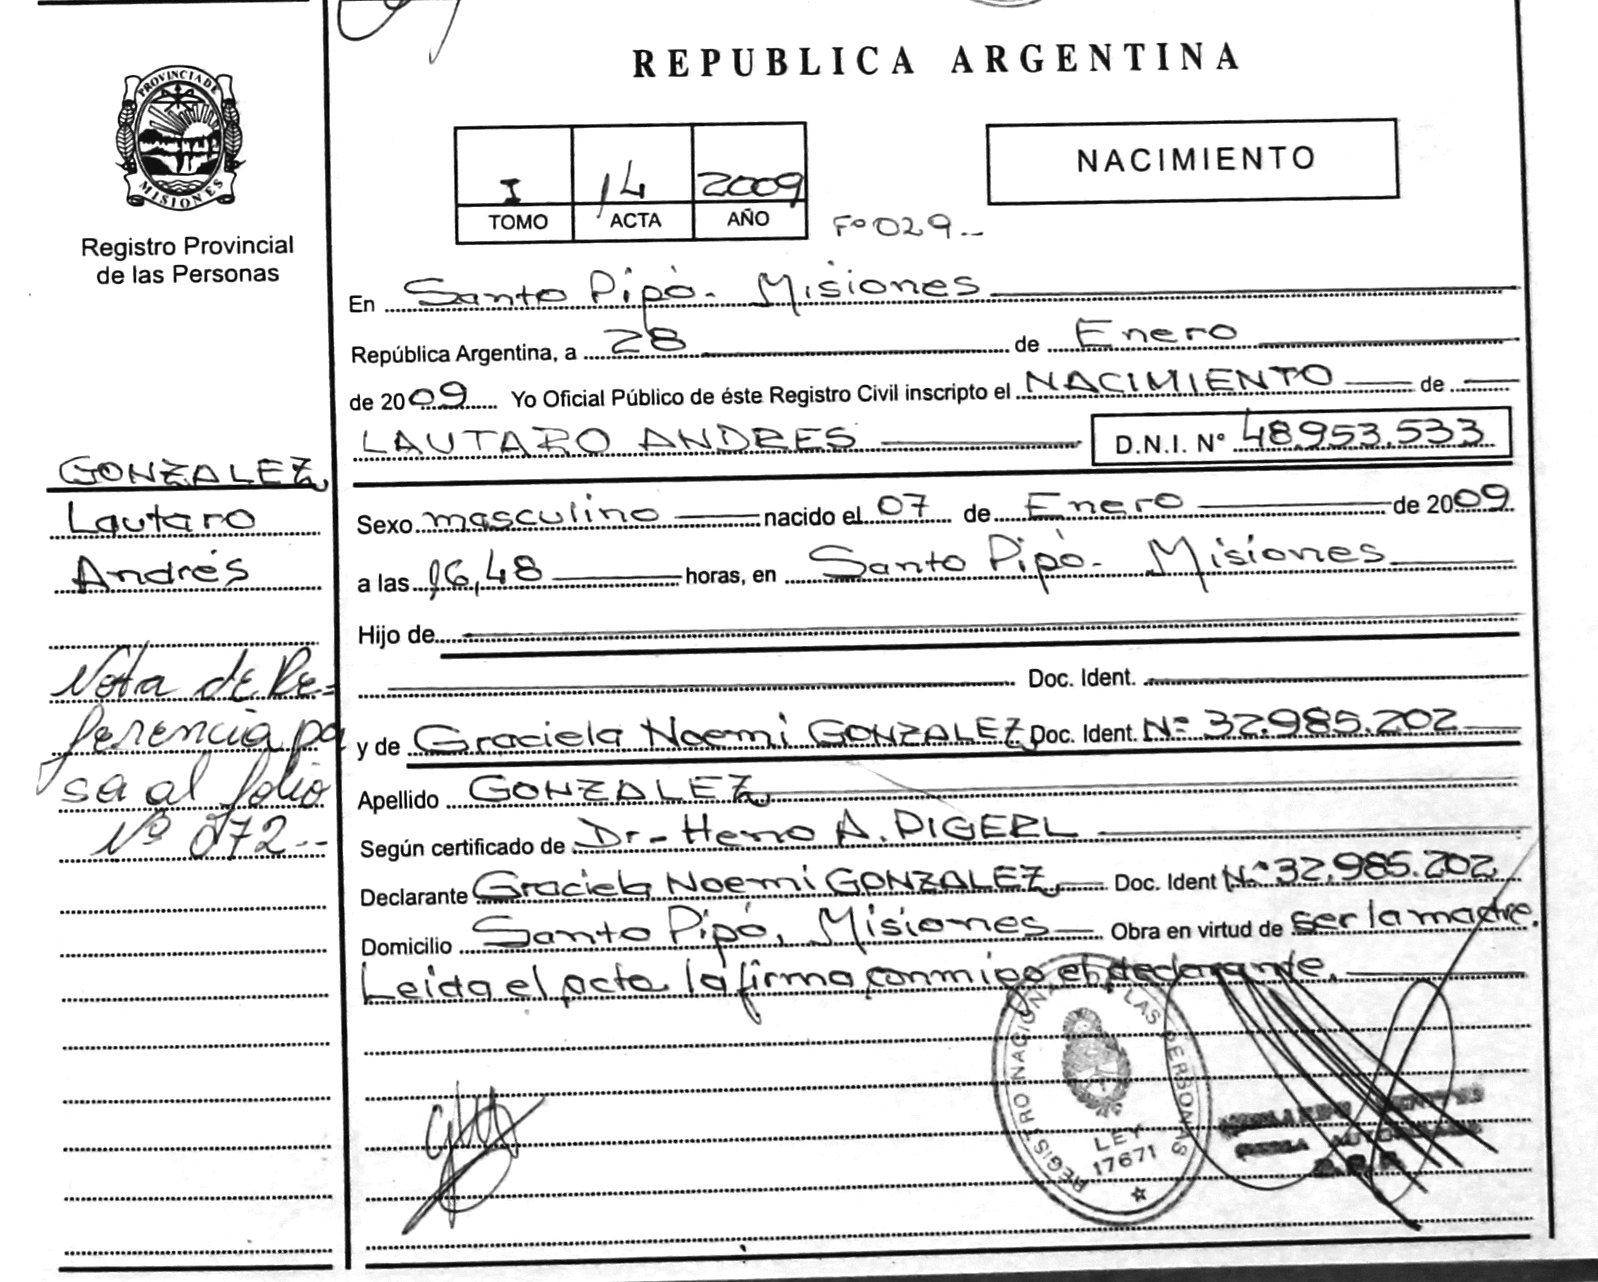 PROVINCIA DE
MISIONES
Registro Provincial
de las Personas
REPUBLICA ARGENTINA
I 14 2009
TOMO ACTA AÑO
Fº 029--
NACIMIENTO
En Santo Pipó- Misiones
República Argentina, a 28 de Enero
de 2009 Yo Oficial Público de éste Registro Civil inscripto el NACIMIENTO de
LAUTARO ANDRES D.N.I. Nº 48.953.533
Sexo masculino nacido el 07 de Enero de 2009
a las 16,48 horas, en Santo Pipó- Misiones
Hijo de
Doc. Ident.
y de Graciela Noemi GONZALEZ Doc. Ident. Nº 32.985.202
Apellido GONZALEZ
Según certificado de Dr- A.
Declarante Graciela Noemi GONZALEZ, Doc. Ident Nº 32.985.202
Domicilio Santo Pipó, Misiones Obra en virtud de ser la madre.
Leida el acta la firma conmigo el declarante.
GONZALEZ,
Lautaro
Andrés
Nota de Re-
ferencia pa
sa al folio
Nº 072--
REGISTRO NACIONAL LAS PERSONAS
LEY
17671